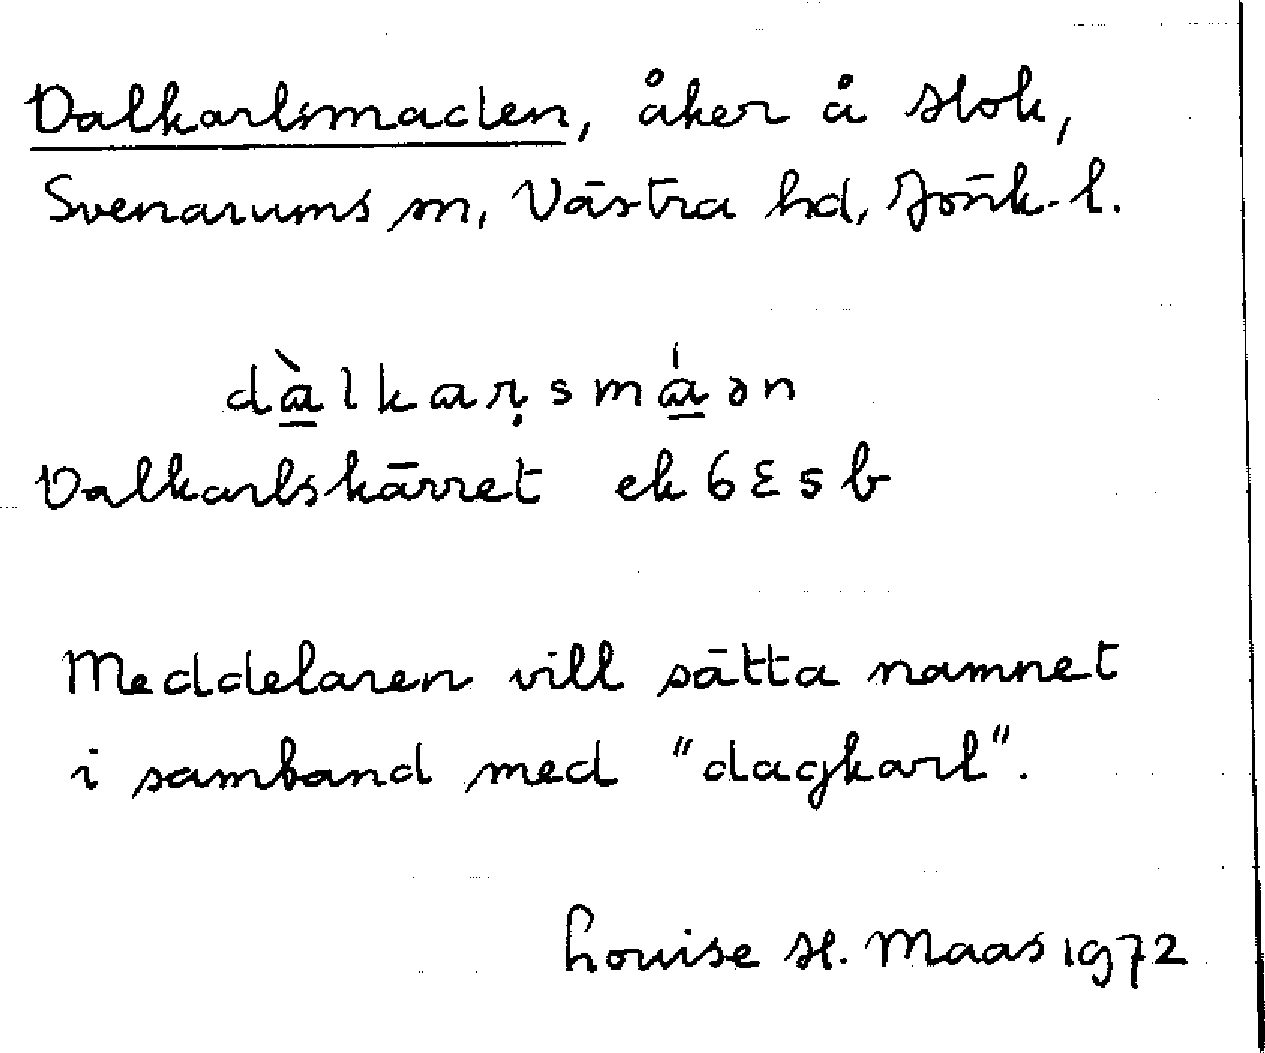 Dalkarlsmaden, åker å Hok,
Svenarums sn, Västra hd, Jönk. l.
dàlkaṛsmáən
Dalkarlskärret ek 6 E 5 b
Meddelaren vill sätta namnet
i samband med "dagkarl".
Louise H. Maas 1972